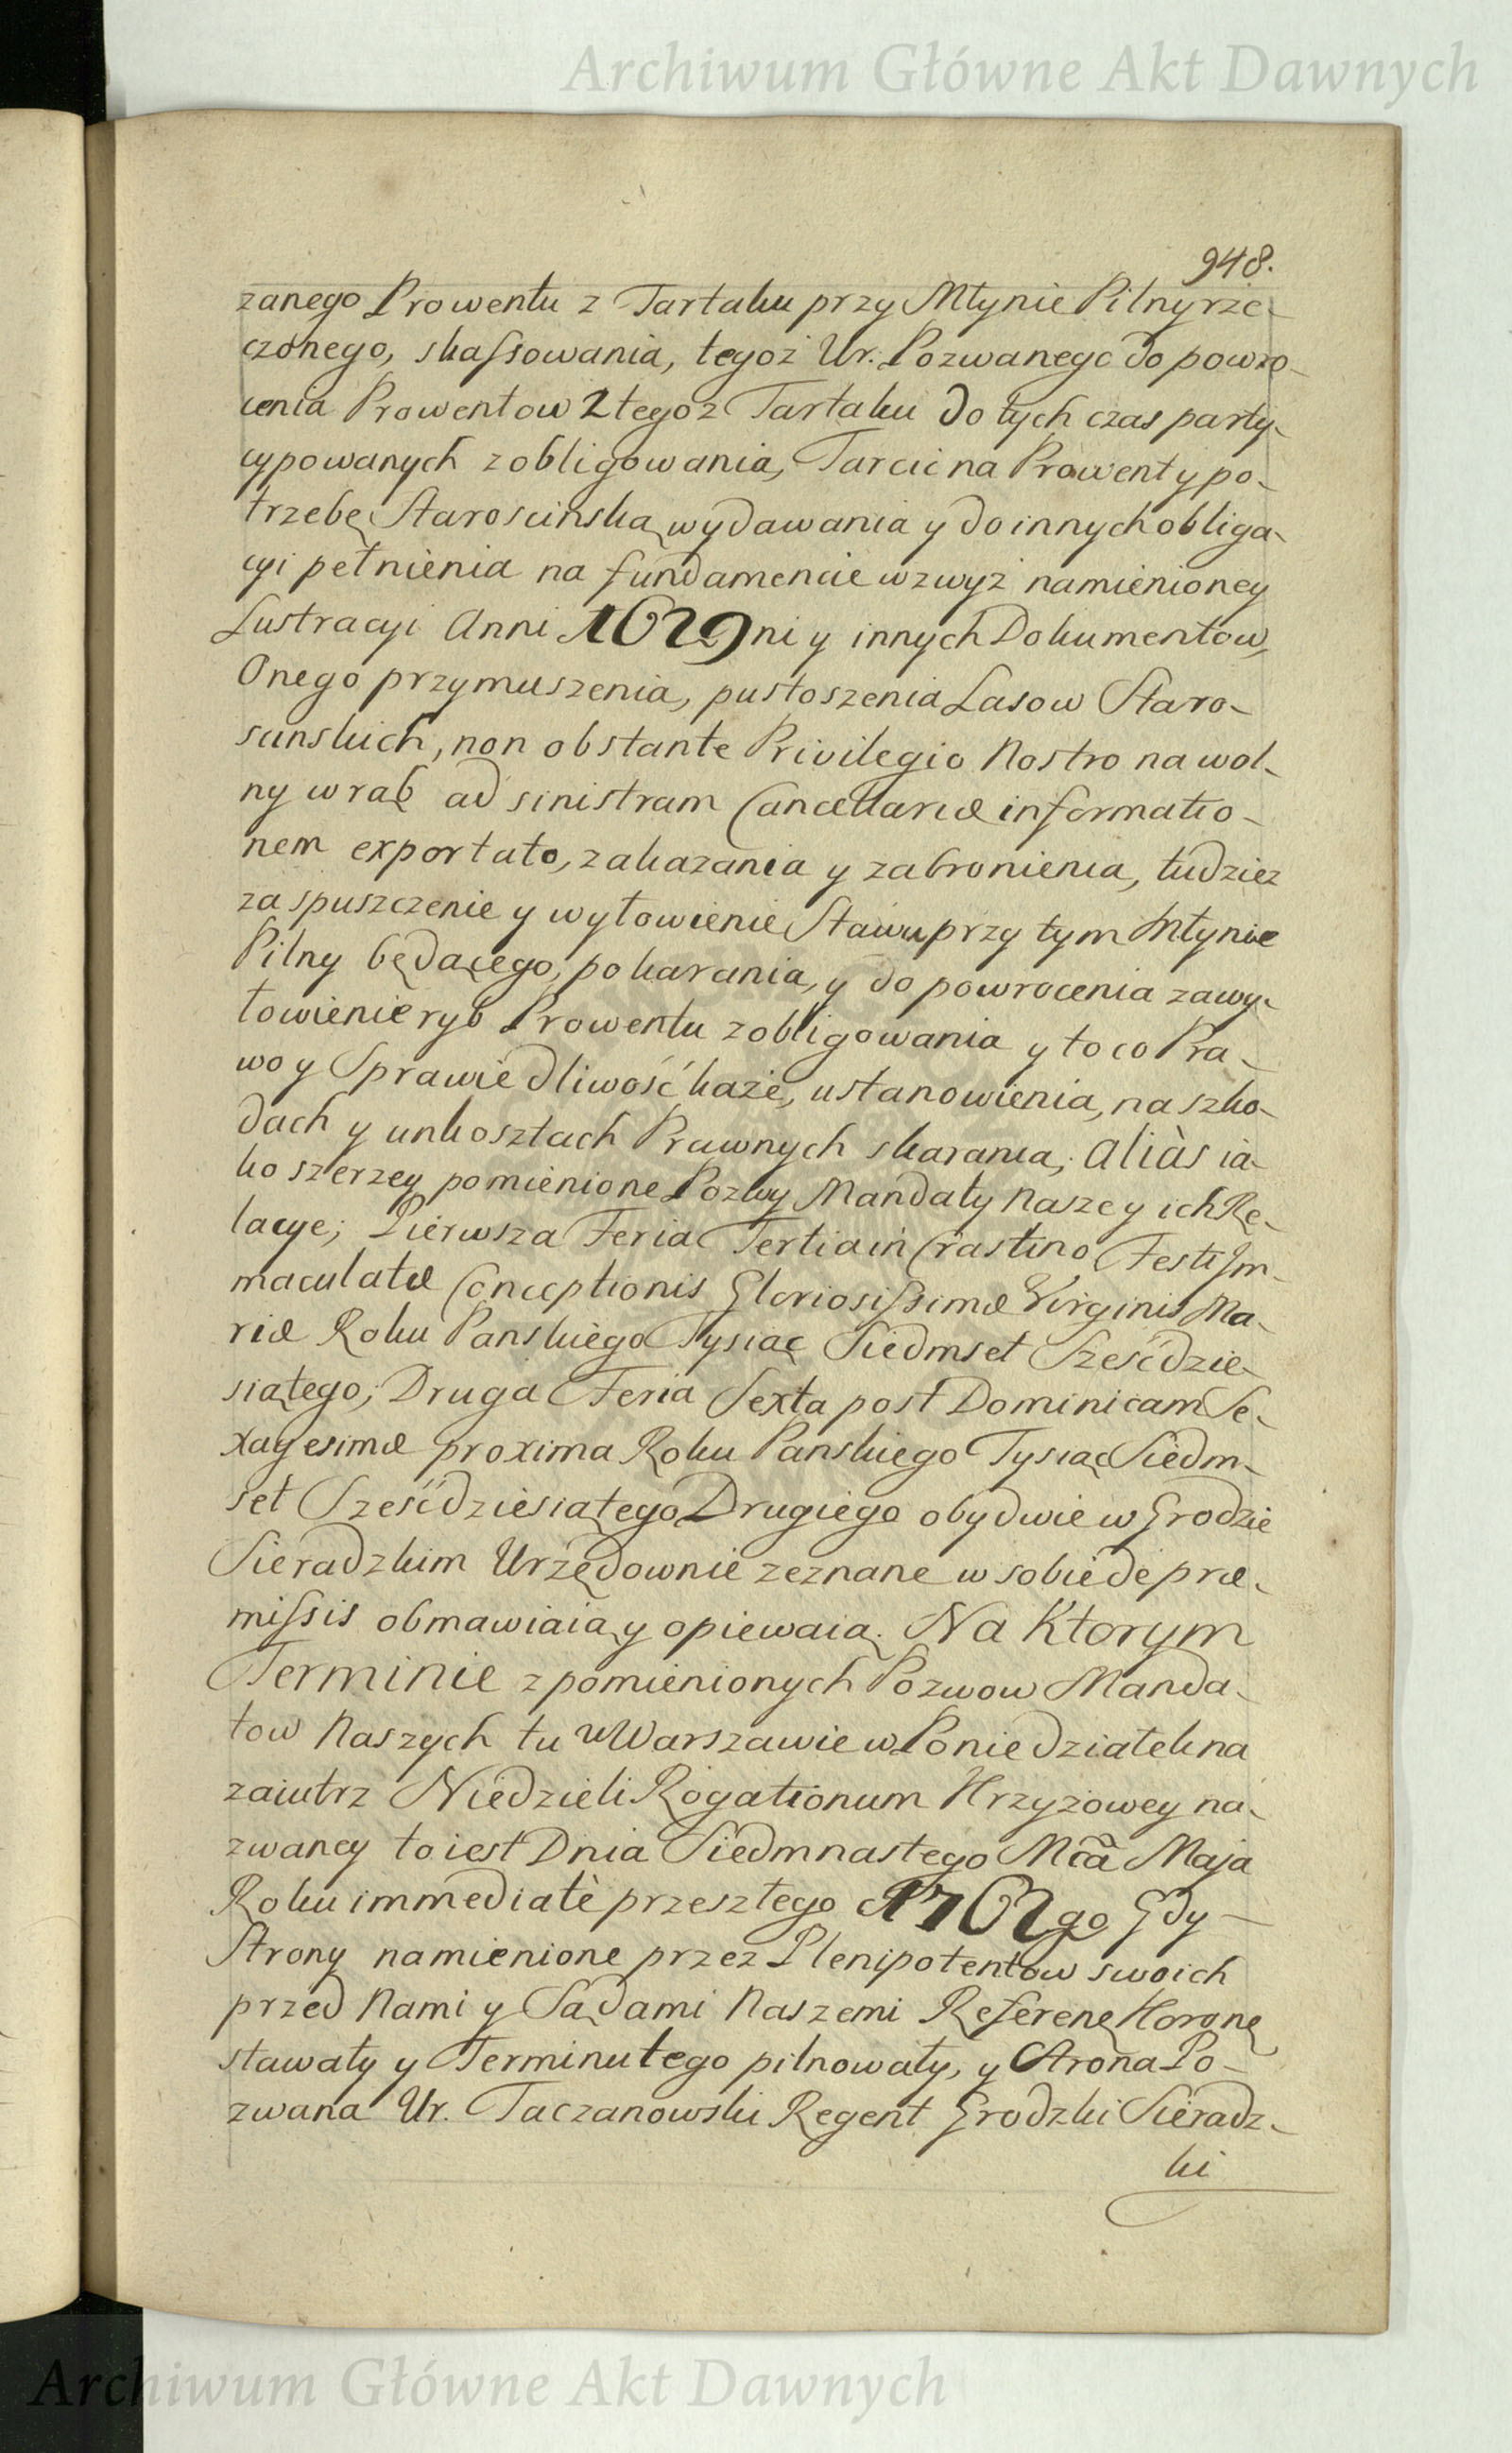 Archiwum Główne Akt Dawnych
948.
zanego Prowentu z Tartaku przy Młynie Pilny rze-
czonego, skaſsowania, tegoż Ur. Pozwanego do powro-
cenia Prowentow z tegoz Tartaku do tych czas party-
cypowanych zobligowania, Tarcic na Prowenty po-
trzebę Starościnską wydawania y do innych obliga-
cyi pełnienia na fundamencie wzwyż namienioney
Lustracyi Anni 1629ni y innych Dokumentow,
Onego przymuszenia, pustoszenia Lasow Staro-
scinskich, non obstante Privilegio Nostro na wol-
ny wrąb ad sinistram Cancellariæ informatio-
nem exportato, zakazania y zabronienia, tudziez
za spuszczenie y wyłowienie Stawu przy tym Młynie
Pilny będącego, pokarania, y do powrocenia za wy-
łowienie ryb Prowentu zobligowania y to co Pra-
wo y Sprawiedliwość każe, ustanowienia, na szko-
dach y unkosztach Prawnych skarania; aliàs ia-
ko szerzey pomienione Pozwy Mandaty Nasze y ich Re-
lacye; Pierwsza Feria Tertia in Crastino Festi Jm-
maculatæ Conceptionis Gloriosiſsimæ Virginis Ma-
riæ Roku Panskiego Tysiąc Siedmset Sześćdzie-
siątego; Druga Feria Sexta post Dominicam Se-
xagesimæ proxima Roku Panskiego Tysiąc Siedm-
set Sześćdziesiątego Drugiego obydwie w Grodzie
Sieradzkim Urzędownie zeznane w sobie de præ-
miſsis obmawiaią y opiewaią. Na Ktorym
Terminie z pomienionych Pozwow Manda-
tow Naszych tu w Warszawie w Poniedziałek na
zaiutrz Niedzieli Rogationum Krzyżowey na-
zwaney to iest Dnia Siedmnastego Mc̃a Maja
Roku immediatè przeszłego 1762go Gdy
Strony namienione przez Plenipotentow swoich
przed Nami y Sądami Naszemi Referen: Koronę
stawały y Terminu tego pilnowały, y Strona Po-
zwana Ur. Taczanowski Regent Grodzki Sieradz-
ki
Archiwum Główne Akt Dawnych